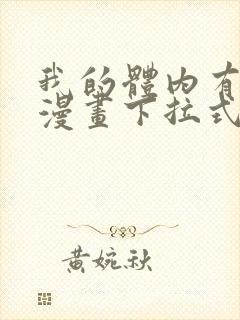 我的體内有
漫畫下拉式
黃婉秋